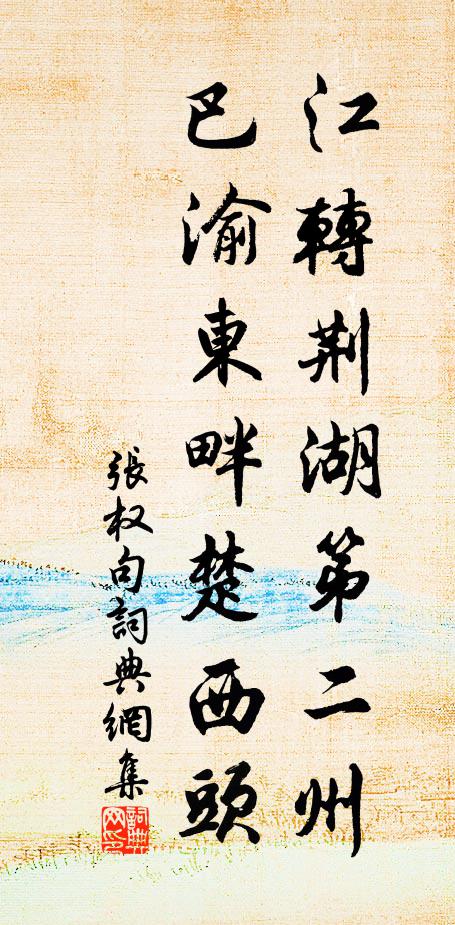 江轉荆湖第二州
巴渝東畔楚西頭
張权句詞典網集
詞典网印